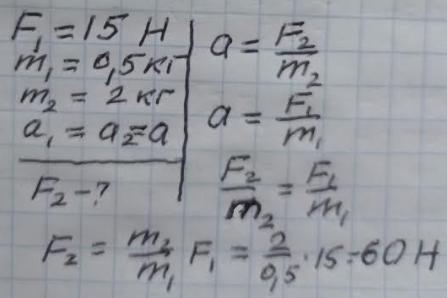 F₁ = 15 Н
m₁ = 0,5 кг
m₂ = 2 кг
a₁ = a₂ = a
F₂ - ?
a = F₂/m₂
a = F₁/m₁
F₂/m₂ = F₁/m₁
F₂ = m₂/m₁ F₁ = 2/0,5 · 15 = 60 Н